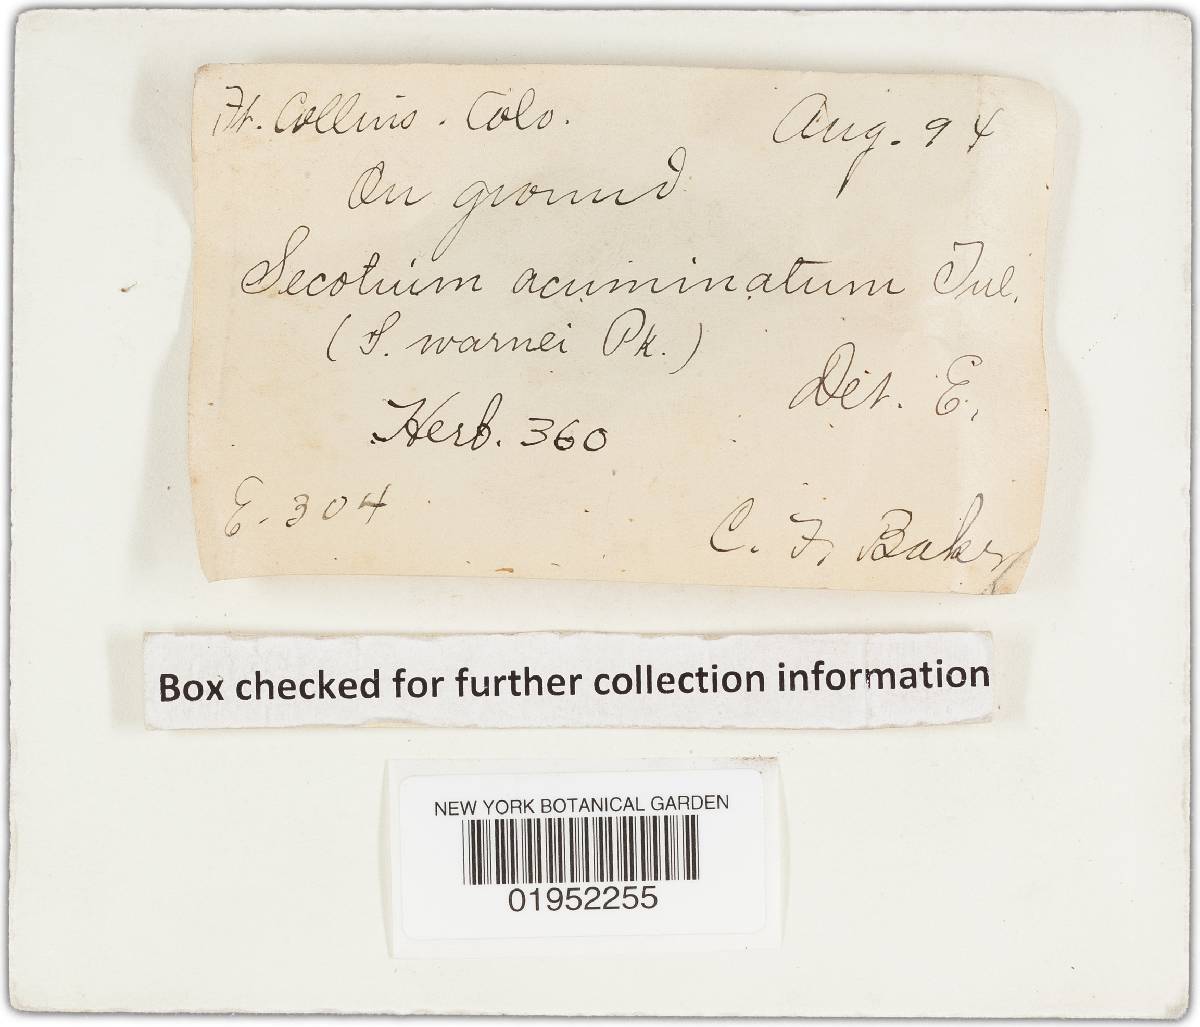 Ft. Collins. Colo. Aug. 94
On ground
Secotium acuminatum Tul.
(S. warnei Pk.)
Det. E.
Herb. 360
E. 304
C. F. Baker
Box checked for further collection information
NEW YORK BOTANICAL GARDEN
01952255